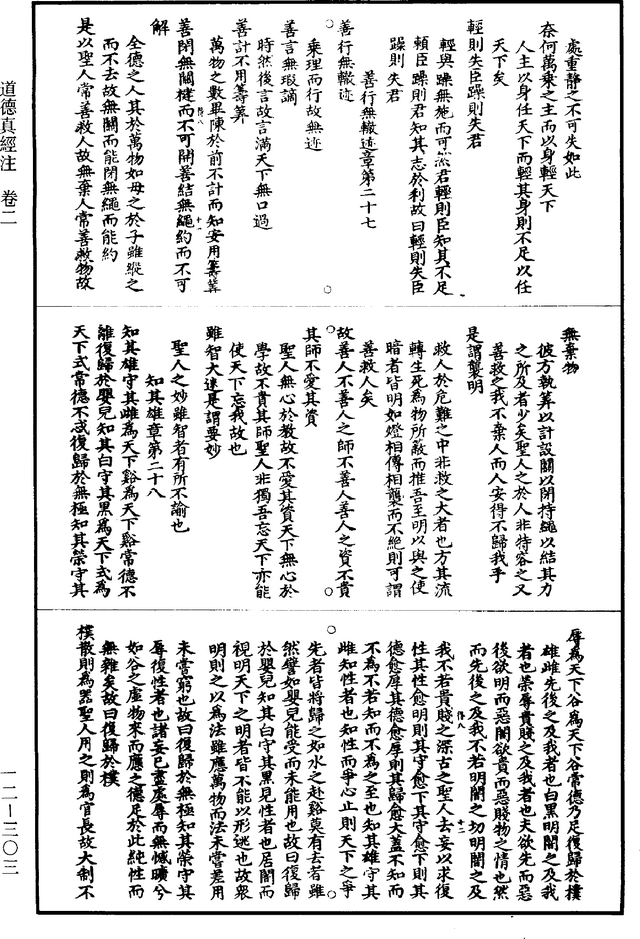 處重靜之不可失如此
奈何萬乘之主而以身輕天下
人主以身任天下而輕其身則不足以任
天下矣
輕則失臣躁則失君
輕與躁無施而可然君輕則臣知其不足
賴臣躁則君知其志於利故曰輕則失臣
躁則失君
善行無轍迹章第二十七
善行無轍迹
乘理而行故無迹
善言無瑕讁
時然後言故言滿天下無口過
善計不用籌筭
萬物之數畢陳於前不計而知安用籌筭
善閉無關楗而不可開善結無繩約而不可
解
全德之人其於萬物如母之於子雖縱之
而不去故無關而能閉無繩而能約
是以聖人常善救人故無棄人常善救物故
無棄物
彼方執筭以計設關以閉持繩以結其力
之所及者少矣聖人之於人非特容之又
善救之我不棄人而人安得不歸我乎
是謂襲明
救人於危難之中非救之大者也方其流
轉生死為物所蔽而推吾至明以與之使
暗者皆明如燈相傳相襲而不絕則可謂
善救人矣
故善人不善人之師不善人善人之資不貴
其師不愛其資
聖人無心於教故不愛其資天下無心於
學故不貴其師聖人非獨吾忘天下亦能
使天下忘我故也
雖智大迷是謂要妙
聖人之妙雖智者有所不諭也
知其雄章第二十八
知其雄守其雌為天下谿為天下谿常德不
離復歸於嬰兒知其白守其黑為天下式為
天下式常德不忒復歸於無極知其榮守其
辱為天下谷為天下谷常德乃足復歸於樸
雄雌先後之及我者也白黑明闇之及我
者也榮辱貴賤之及我者也夫欲先而惡
後欲明而惡闇欲貴而惡賤物之情也然
而先後之及我不若明闇之切明闇之及
我不若貴賤之深古之聖人去妄以求復
性其性愈明則其守愈下其守愈下則其
德愈厚其德愈厚則其歸愈大蓋不知而
不為不若知而不為之至也知其雄守其
雌知性者也知性而爭心止則天下之爭
先者皆將歸之如水之赴谿莫有去者雖
然譬如嬰兒能受而未能用也故曰復歸
於嬰兒知其白守其黑見性者也居闇而
視明天下之明者皆不能以形逃也故衆
明則之以為法雖應萬物而法未嘗差用
未嘗窮也故曰復歸於無極知其榮守其
辱復性者也諸妄已盡處辱而無憾曠兮
如谷之虛物來而應之德足於此純性而
無雜矣故曰復歸於樸
樸散則為器聖人用之則為官長故大制不
道德真經注 卷二
一二—三〇三